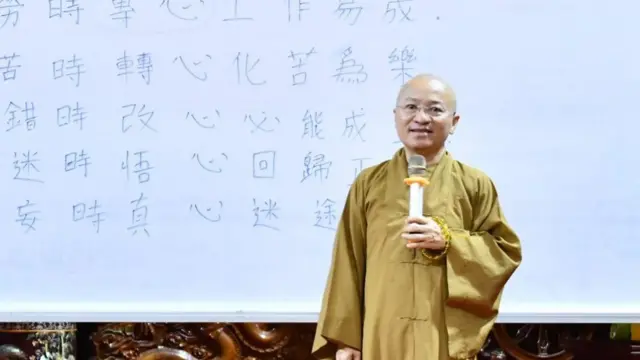 時 心 工 作 易 成 .
苦 時 轉 心 化 苦 為 樂
錯 時 改 心 心 能 成
迷 時 悟 心 回 歸
妄 時 真 心 迷 途